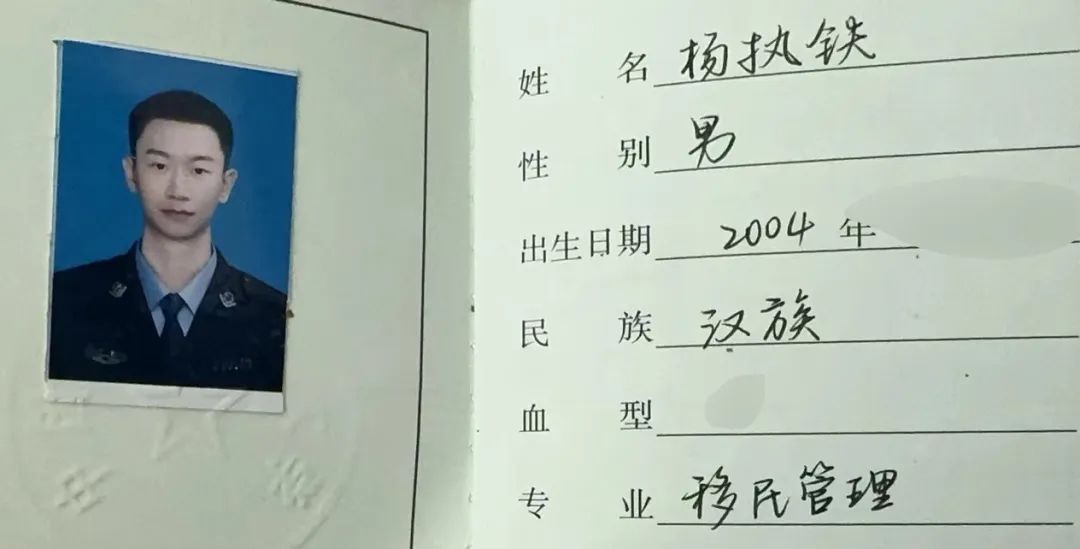 姓 名 杨执铁
性 别 男
出生日期 2004 年
民 族 汉族
血 型
专 业 移民管理